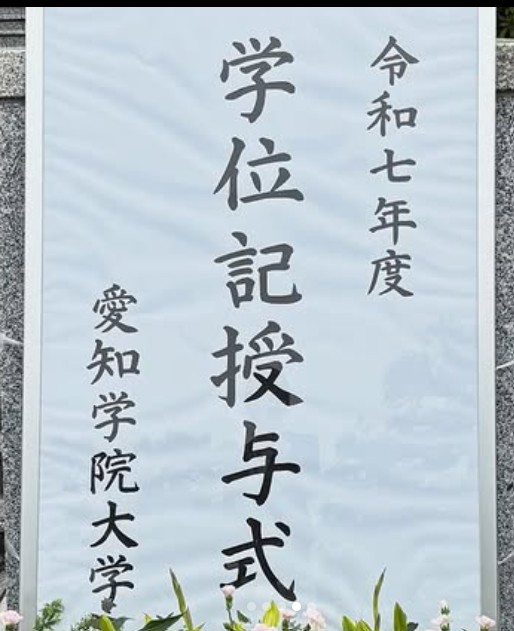 令和七年度
学位記授与式
愛知学院大学